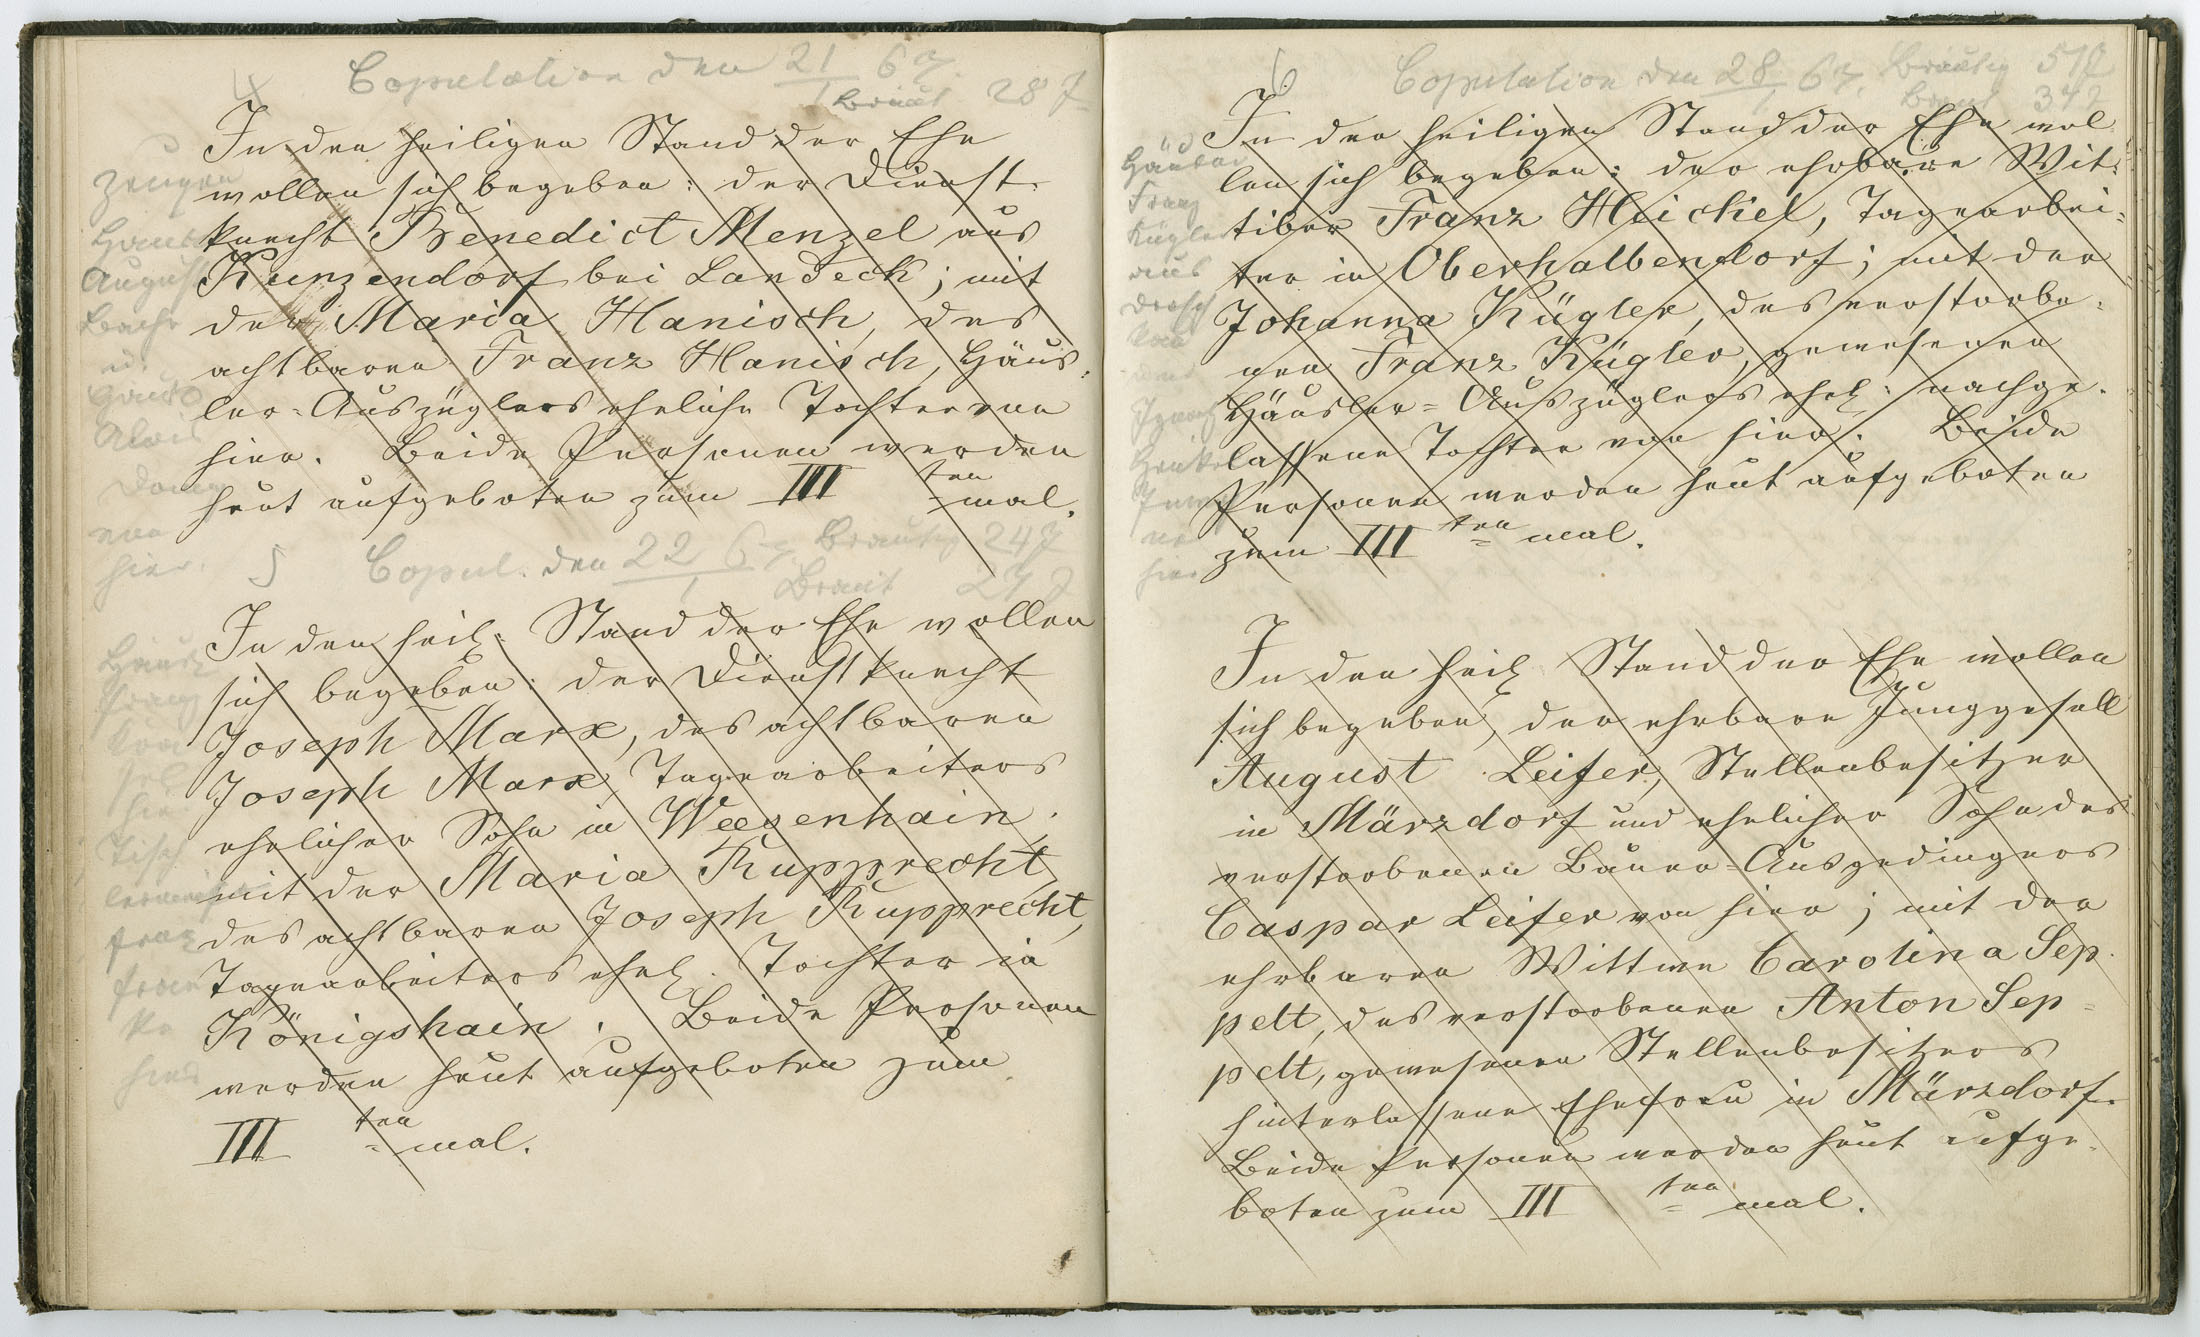 4 Copulation den 21/1 67.
Braut 28 J
Zeugen
Häusl
August
u.
Alois
von
hier.
In den heiligen Stand der Ehe
wollen sich begeben: der Dienst-
knecht Benedict Menzel aus
Kunzendorf bei Landeck; mit
der Maria Hanisch, des
achtbaren Franz Hanisch, Häus-
ler-Auszüglers eheliche Tochter von
hier. Beide Personen werden
heut aufgeboten zum III ten mal.
5 Copul. den 22/1 67. Bräutig 24 J
Braut 27 J
Häusl
Franz
hier
Tisch
lermeist
Franz
hier
In den heil. Stand der Ehe wollen
sich begeben: der Dienstknecht
Joseph Marx, des achtbaren
Joseph Marx, Tagearbeiters
ehelicher Sohn in Weesenhain.
mit der Maria Rupprecht,
des achtbaren Joseph Rupprecht,
Tagearbeiters ehel. Tochter in
Königshain. Beide Personen
werden heut aufgeboten zum
III ten mal.
6 Copulation den 28/1 67. Bräutig 51 J
Braut 34 J
Häusler
Franz
Kügler
aus
Ignatz
hier
In den heiligen Stand der Ehe wol
len sich begeben: der ehrbare Wit-
tiber Franz Heickel, Tagearbei-
ter in Oberhalbendorf; mit der
Johanna Kügler, des verstorbe-
nen Franz Kügler, gewesenen
Häusler-Auszüglers ehel: nachge-
lassene Tochter von hier. Beide
Personen werden heut aufgeboten
zum III ten mal.
In den heil Stand der Ehe wollen
sich begeben, der ehrbare Junggesell
August Leifer, Stellenbesitzer
in Märzdorf und ehelicher Sohn des
verstorbenen Bauer-Ausgedingers
Caspar Leifer von hier; mit der
ehrbaren Wittwe Carolina Sep-
pelt, des verstorbenen Anton Sep-
pelt, gewesenen Stellenbesitzers
hinterlassene Ehefrau in Märzdorf.
Beide Personen werden heut aufge-
boten zum III ten mal.